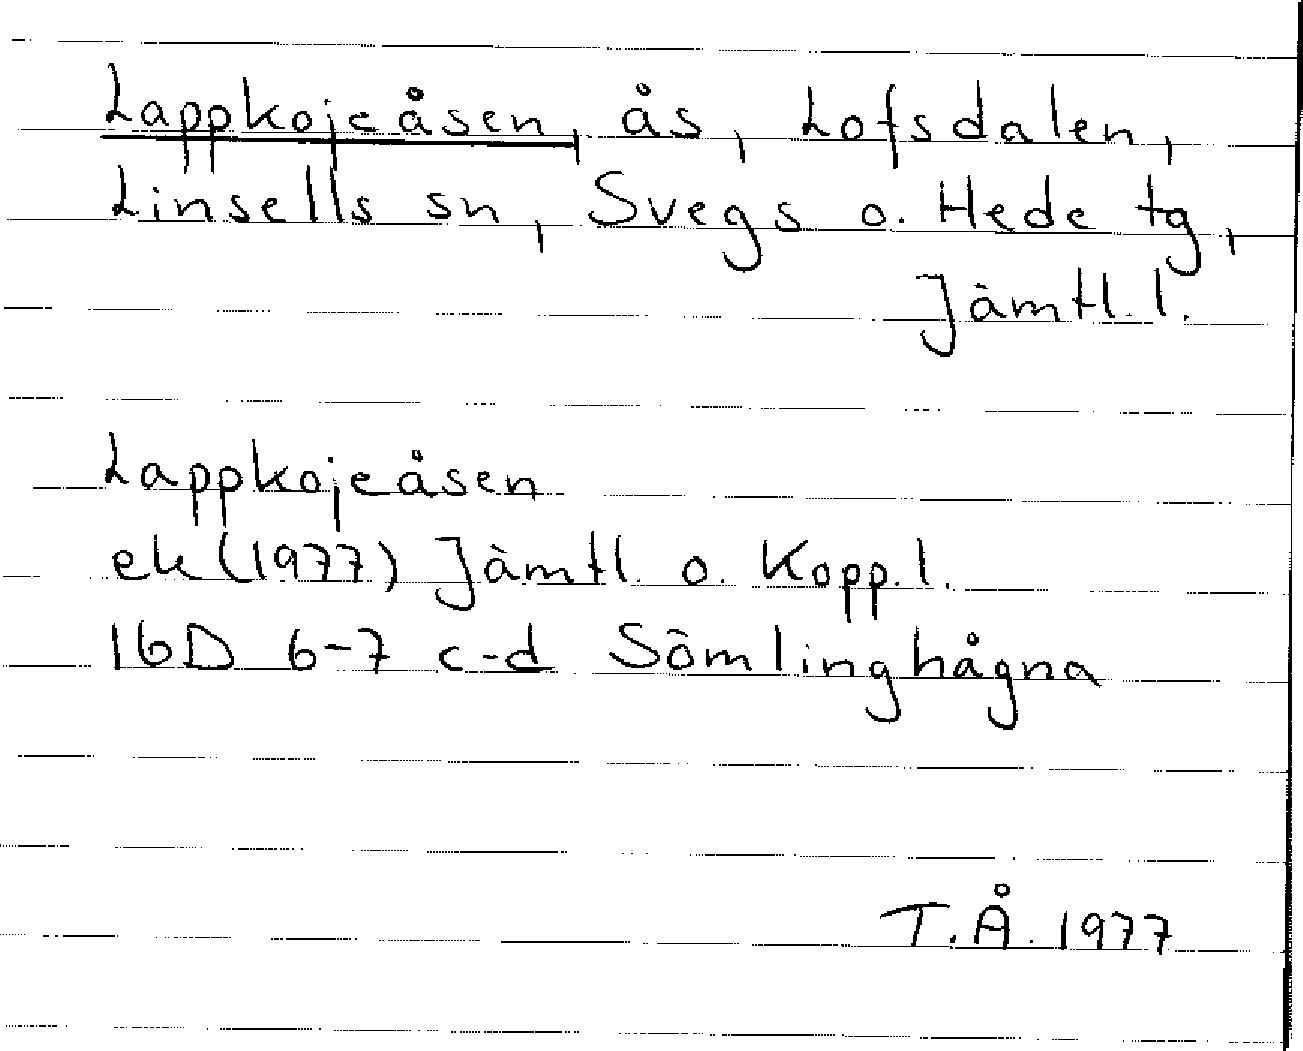 Lappkojeåsen, ås, Lofsdalen,
Linsells sn, Svegs o. Hede tg,
Jämtl. l.
Lappkojeåsen
ek (1977) Jämtl. o. Kopp. l.
16D 6-7 c-d Sömlinghågna
T.Å. 1977